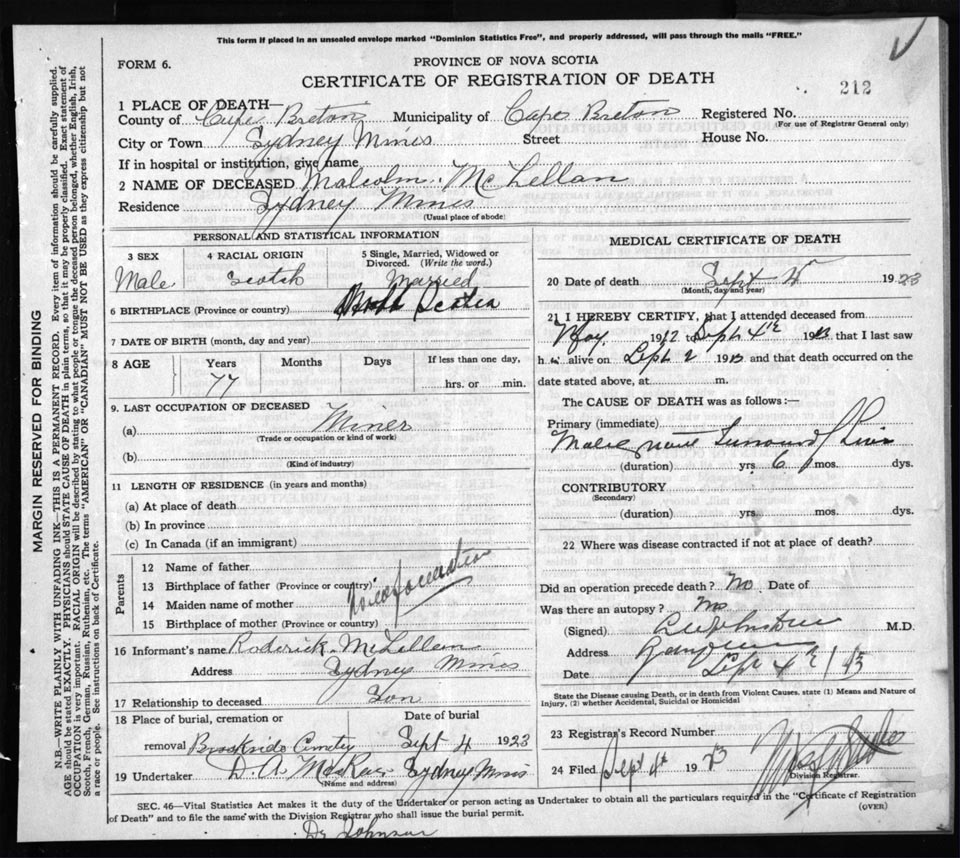 This form if placed in an unsealed envelope marked "Dominion Statistics Free", and properly addressed, will pass through the mails "FREE."
FORM 6.
PROVINCE OF NOVA SCOTIA
CERTIFICATE OF REGISTRATION OF DEATH
212
1 PLACE OF DEATH—
County of Cape Breton Municipality of Cape Breton Registered No.
(For use of Registrar General only)
City or Town Sydney Mines Street House No.
If in hospital or institution, give name
2 NAME OF DECEASED Malcolm McLellan
Residence Sydney Mines
(Usual place of abode)
PERSONAL AND STATISTICAL INFORMATION
3 SEX 4 RACIAL ORIGIN 5 Single, Married, Widowed or Divorced. (Write the word.)
Male Scotch Married
6 BIRTHPLACE (Province or country) Nova Scotia
7 DATE OF BIRTH (month, day and year)
8 AGE Years Months Days If less than one day,
77 hrs. or min.
9. LAST OCCUPATION OF DECEASED
(a) Miner
(Trade or occupation or kind of work)
(b)
(Kind of industry)
11 LENGTH OF RESIDENCE (in years and months)
(a) At place of death
(b) In province
(c) In Canada (if an immigrant)
Parents
12 Name of father
13 Birthplace of father (Province or country)
14 Maiden name of mother
15 Birthplace of mother (Province or country)
no information
16 Informant's name Roderick McLellan
Address Sydney Mines
17 Relationship to deceased Son
18 Place of burial, cremation or Date of burial
removal Brookside Cemetry Sept 4 1923
19 Undertaker D. A. McRae Sydney Mines
(Name and address)
MEDICAL CERTIFICATE OF DEATH
20 Date of death Sept 1923
(Month, day and year)
21 I HEREBY CERTIFY, that I attended deceased from
May 19 Sept 4th 19 that I last saw
h alive on Sept 2 19 and that death occurred on the
date stated above, at m.
The CAUSE OF DEATH was as follows:—
Primary (immediate)
(duration) yrs 6 mos. dys.
CONTRIBUTORY
(Secondary)
(duration) yrs mos. dys.
22 Where was disease contracted if not at place of death?
Did an operation precede death? No Date of
Was there an autopsy? No
(Signed) M.D.
Address
Date Sept 4th / 23
State the Disease causing Death, or in death from Violent Causes, state (1) Means and Nature of
Injury, (2) whether Accidental, Suicidal or Homicidal
23 Registrar's Record Number
24 Filed Sept 4th 1923
Division Registrar.
SEC. 46—Vital Statistics Act makes it the duty of the Undertaker or person acting as Undertaker to obtain all the particulars required in the "Certificate of Registration
of Death" and to file the same with the Division Registrar who shall issue the burial permit.
(OVER)
Dr Johnson
MARGIN RESERVED FOR BINDING
N.B.—WRITE PLAINLY WITH UNFADING INK—THIS IS A PERMANENT RECORD. Every item of information should be carefully supplied.
AGE should be stated EXACTLY. PHYSICIANS should STATE CAUSE OF DEATH in plain terms, so that it may be properly classified. Exact statement of
OCCUPATION is very important. RACIAL ORIGIN will be described by stating to what people or tongue the deceased person belonged, whether English, Irish,
Scotch, French, German, Russian, Ruthenian, etc. The terms "AMERICAN" or "CANADIAN" MUST NOT BE USED as they express citizenship but not
a race or people. See instructions on back of Certificate.